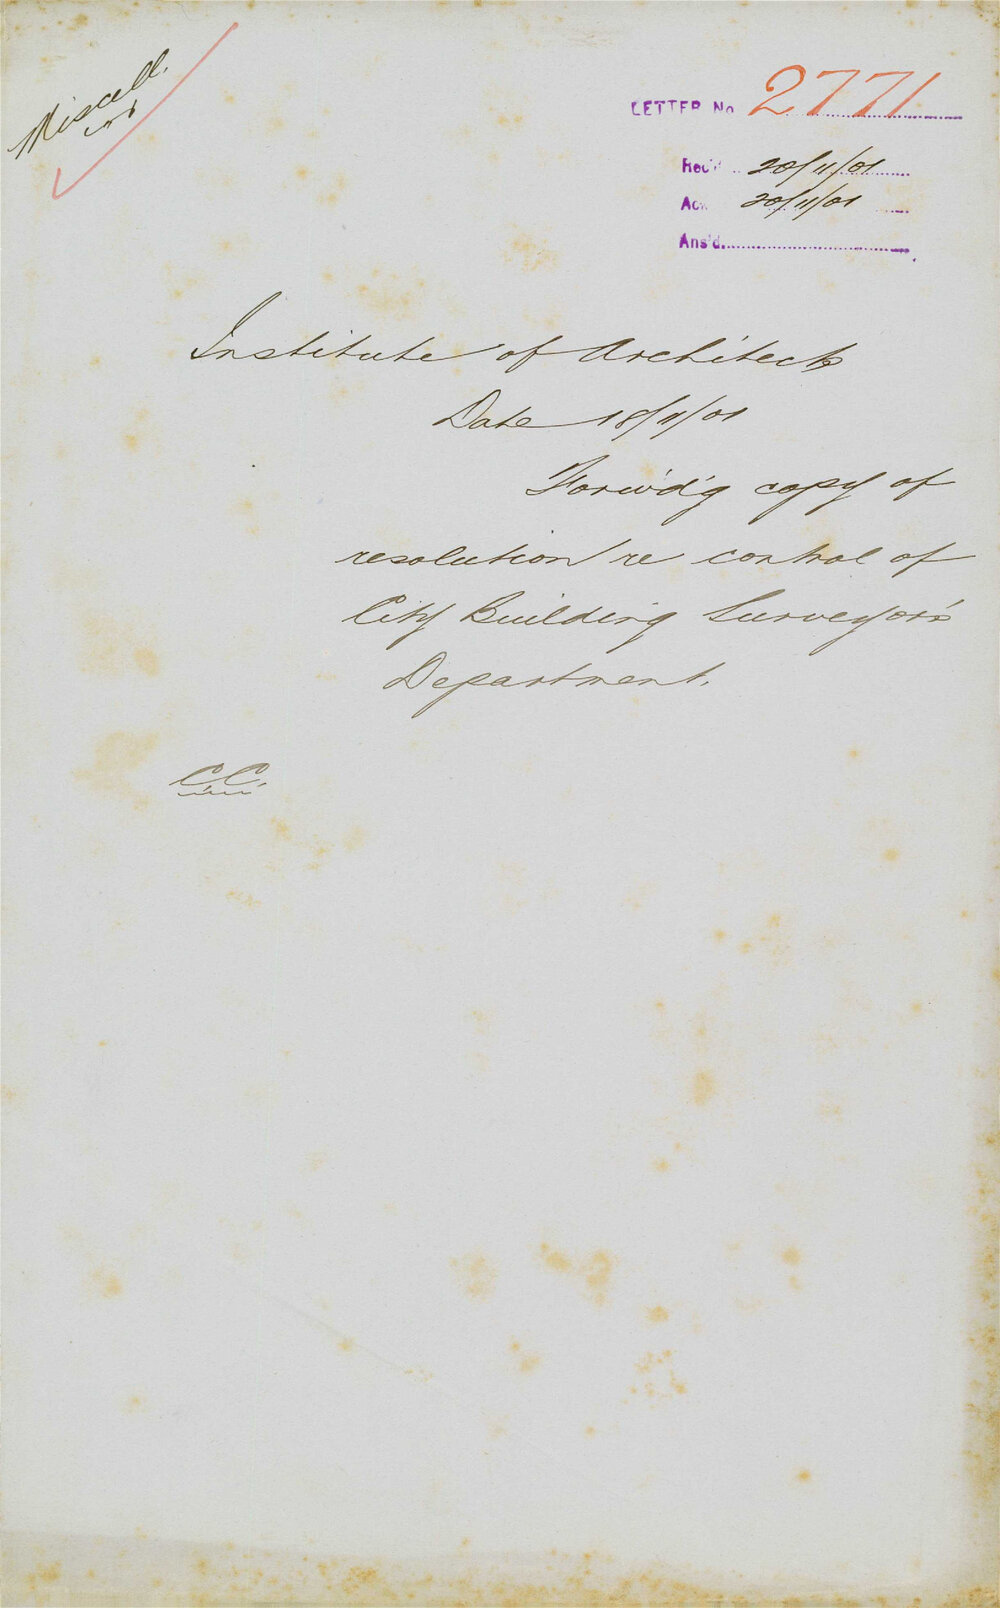 Miscell.
LETTER No 2771
Rec'd 20/11/01
Ack 20/11/01
Ans'd
Institute of Architects
Date 18/11/01
Forw'd'g copy of
resolution re control of
City Building Surveyor's
Department.
C.C.